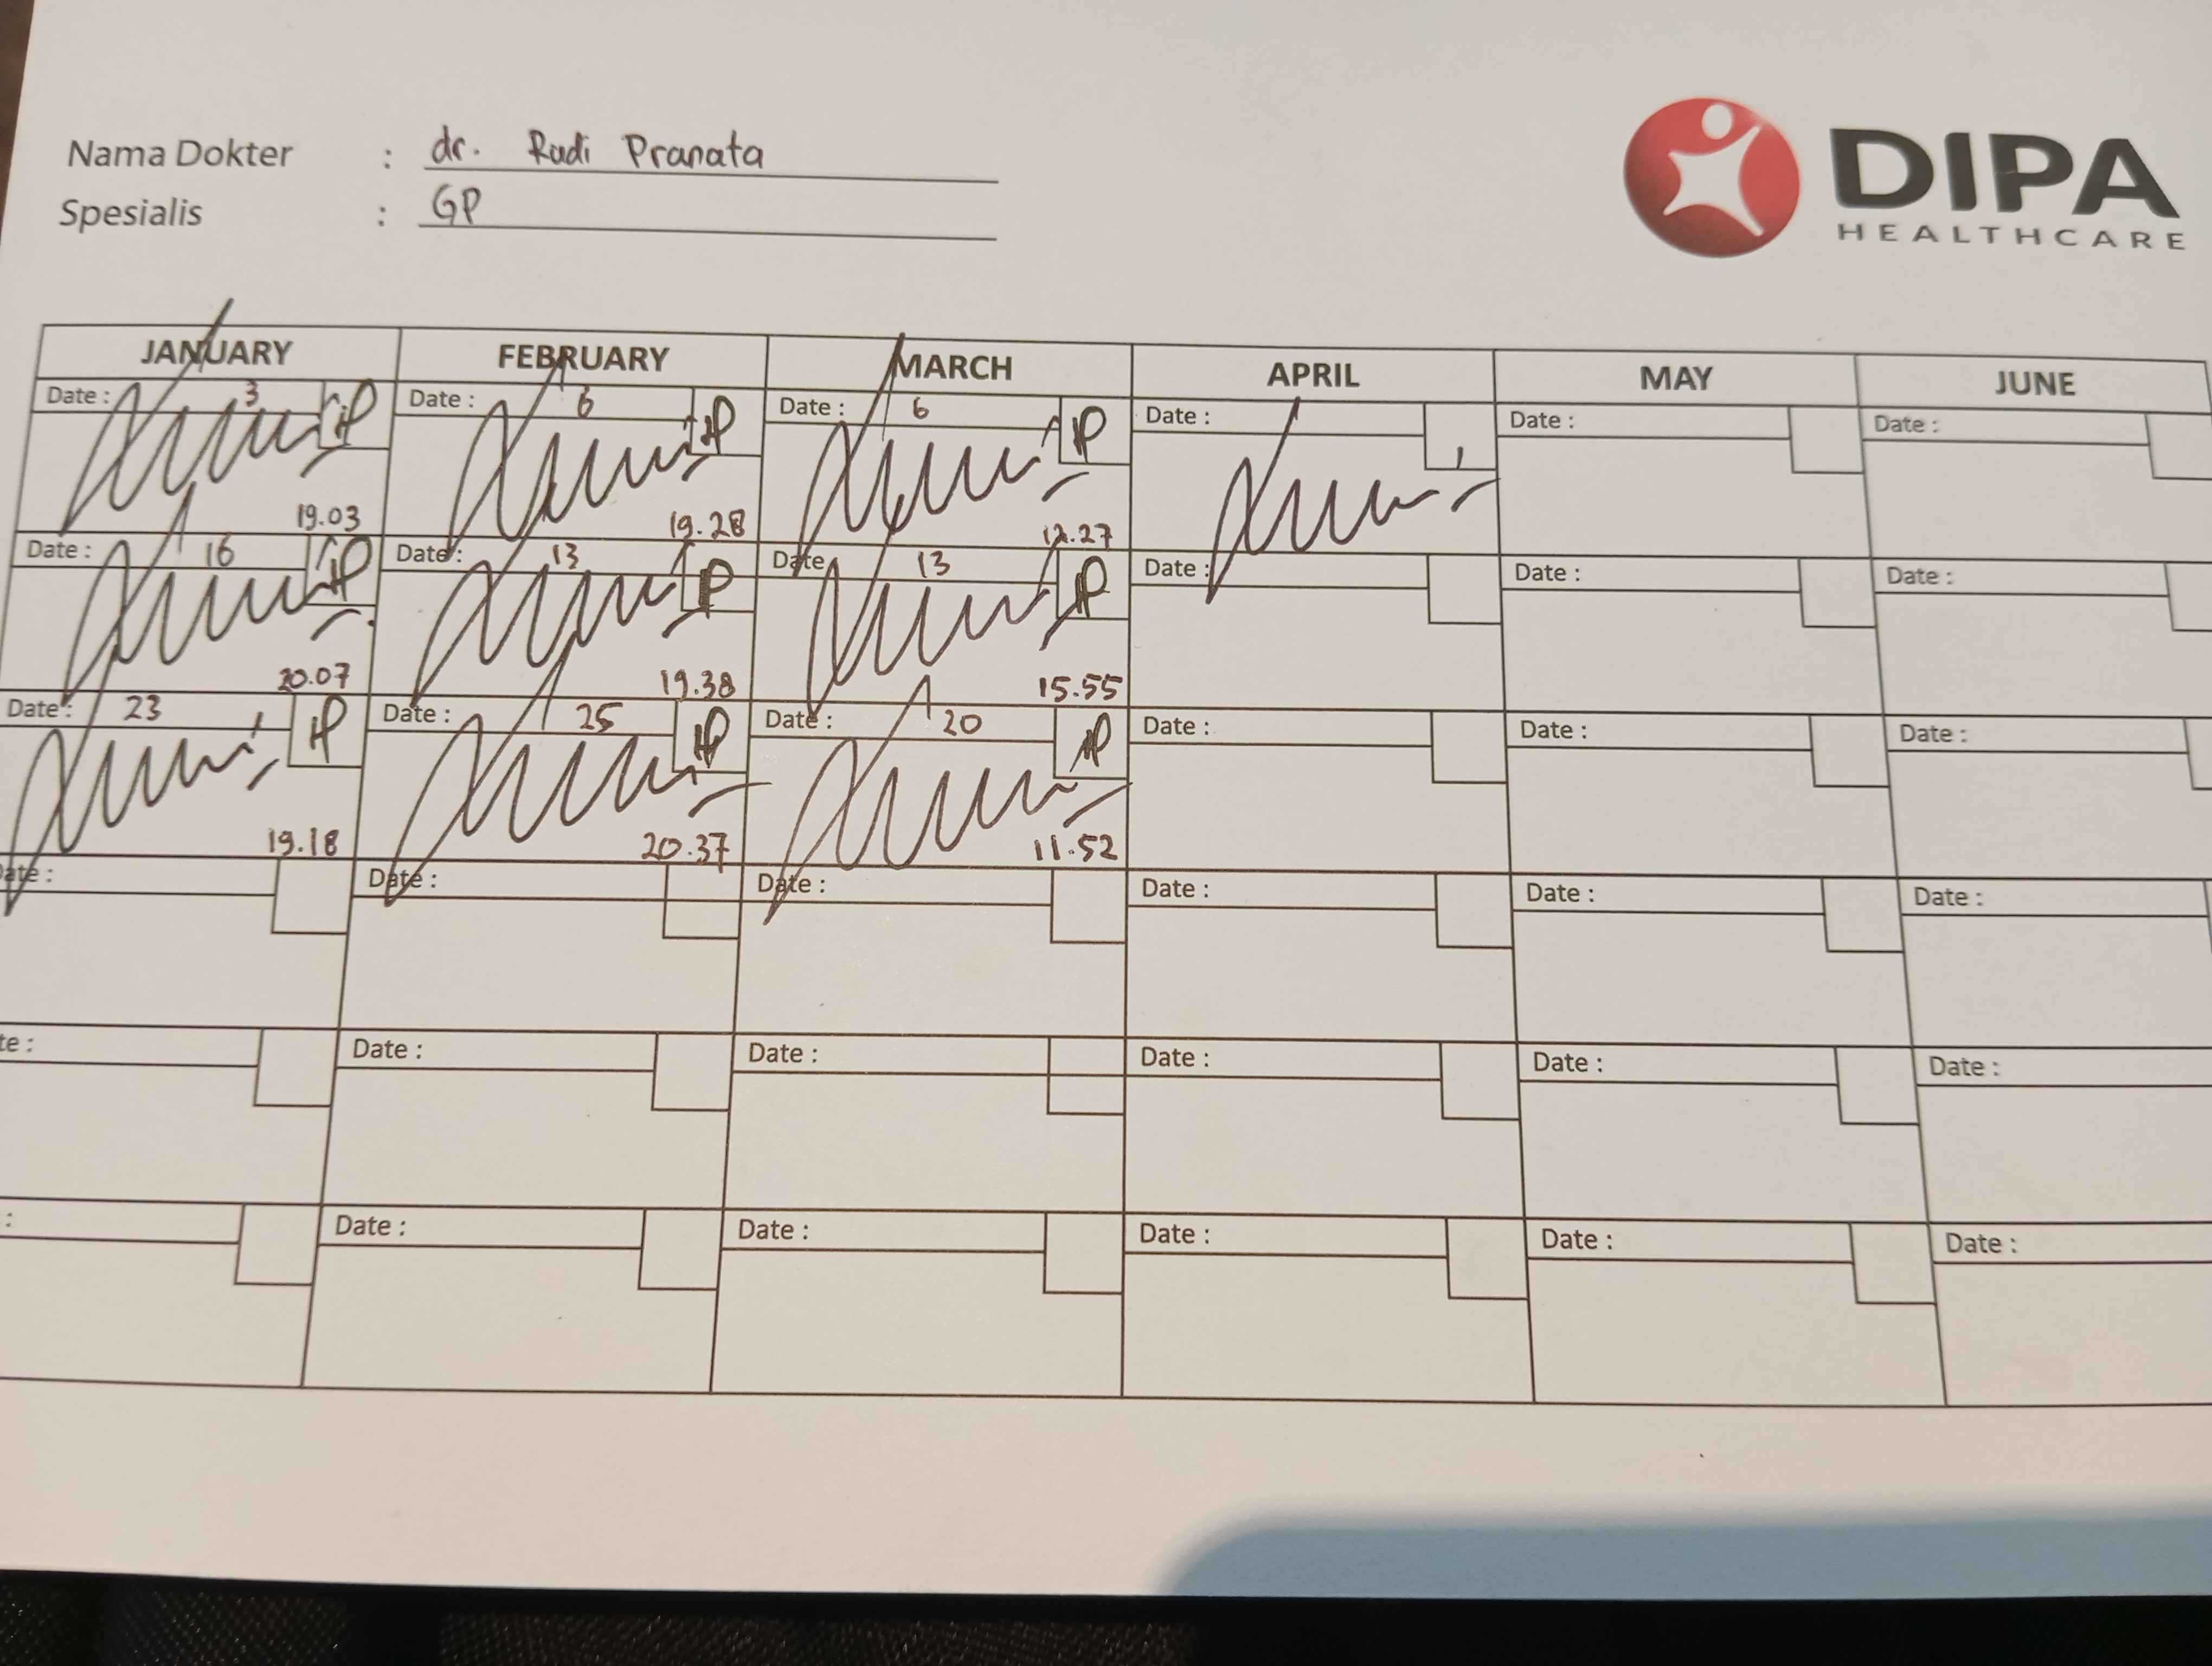 Nama Dokter : dr. Rudi Pranata
Spesialis : GP
DIPA
HEALTHCARE
JANUARY FEBRUARY MARCH APRIL MAY JUNE
Date : 3 Date : 6 Date : 6 Date : Date : Date :
19.03 19.28 12.27
Date : 16 Date : 13 Date 13 Date : Date : Date :
20.07 19.38 15.55
Date : 23 Date : 25 Date : 20 Date : Date : Date :
19.18 20.37 11.52
Date : Date : Date : Date : Date : Date :
te : Date : Date : Date : Date : Date :
: Date : Date : Date : Date : Date :